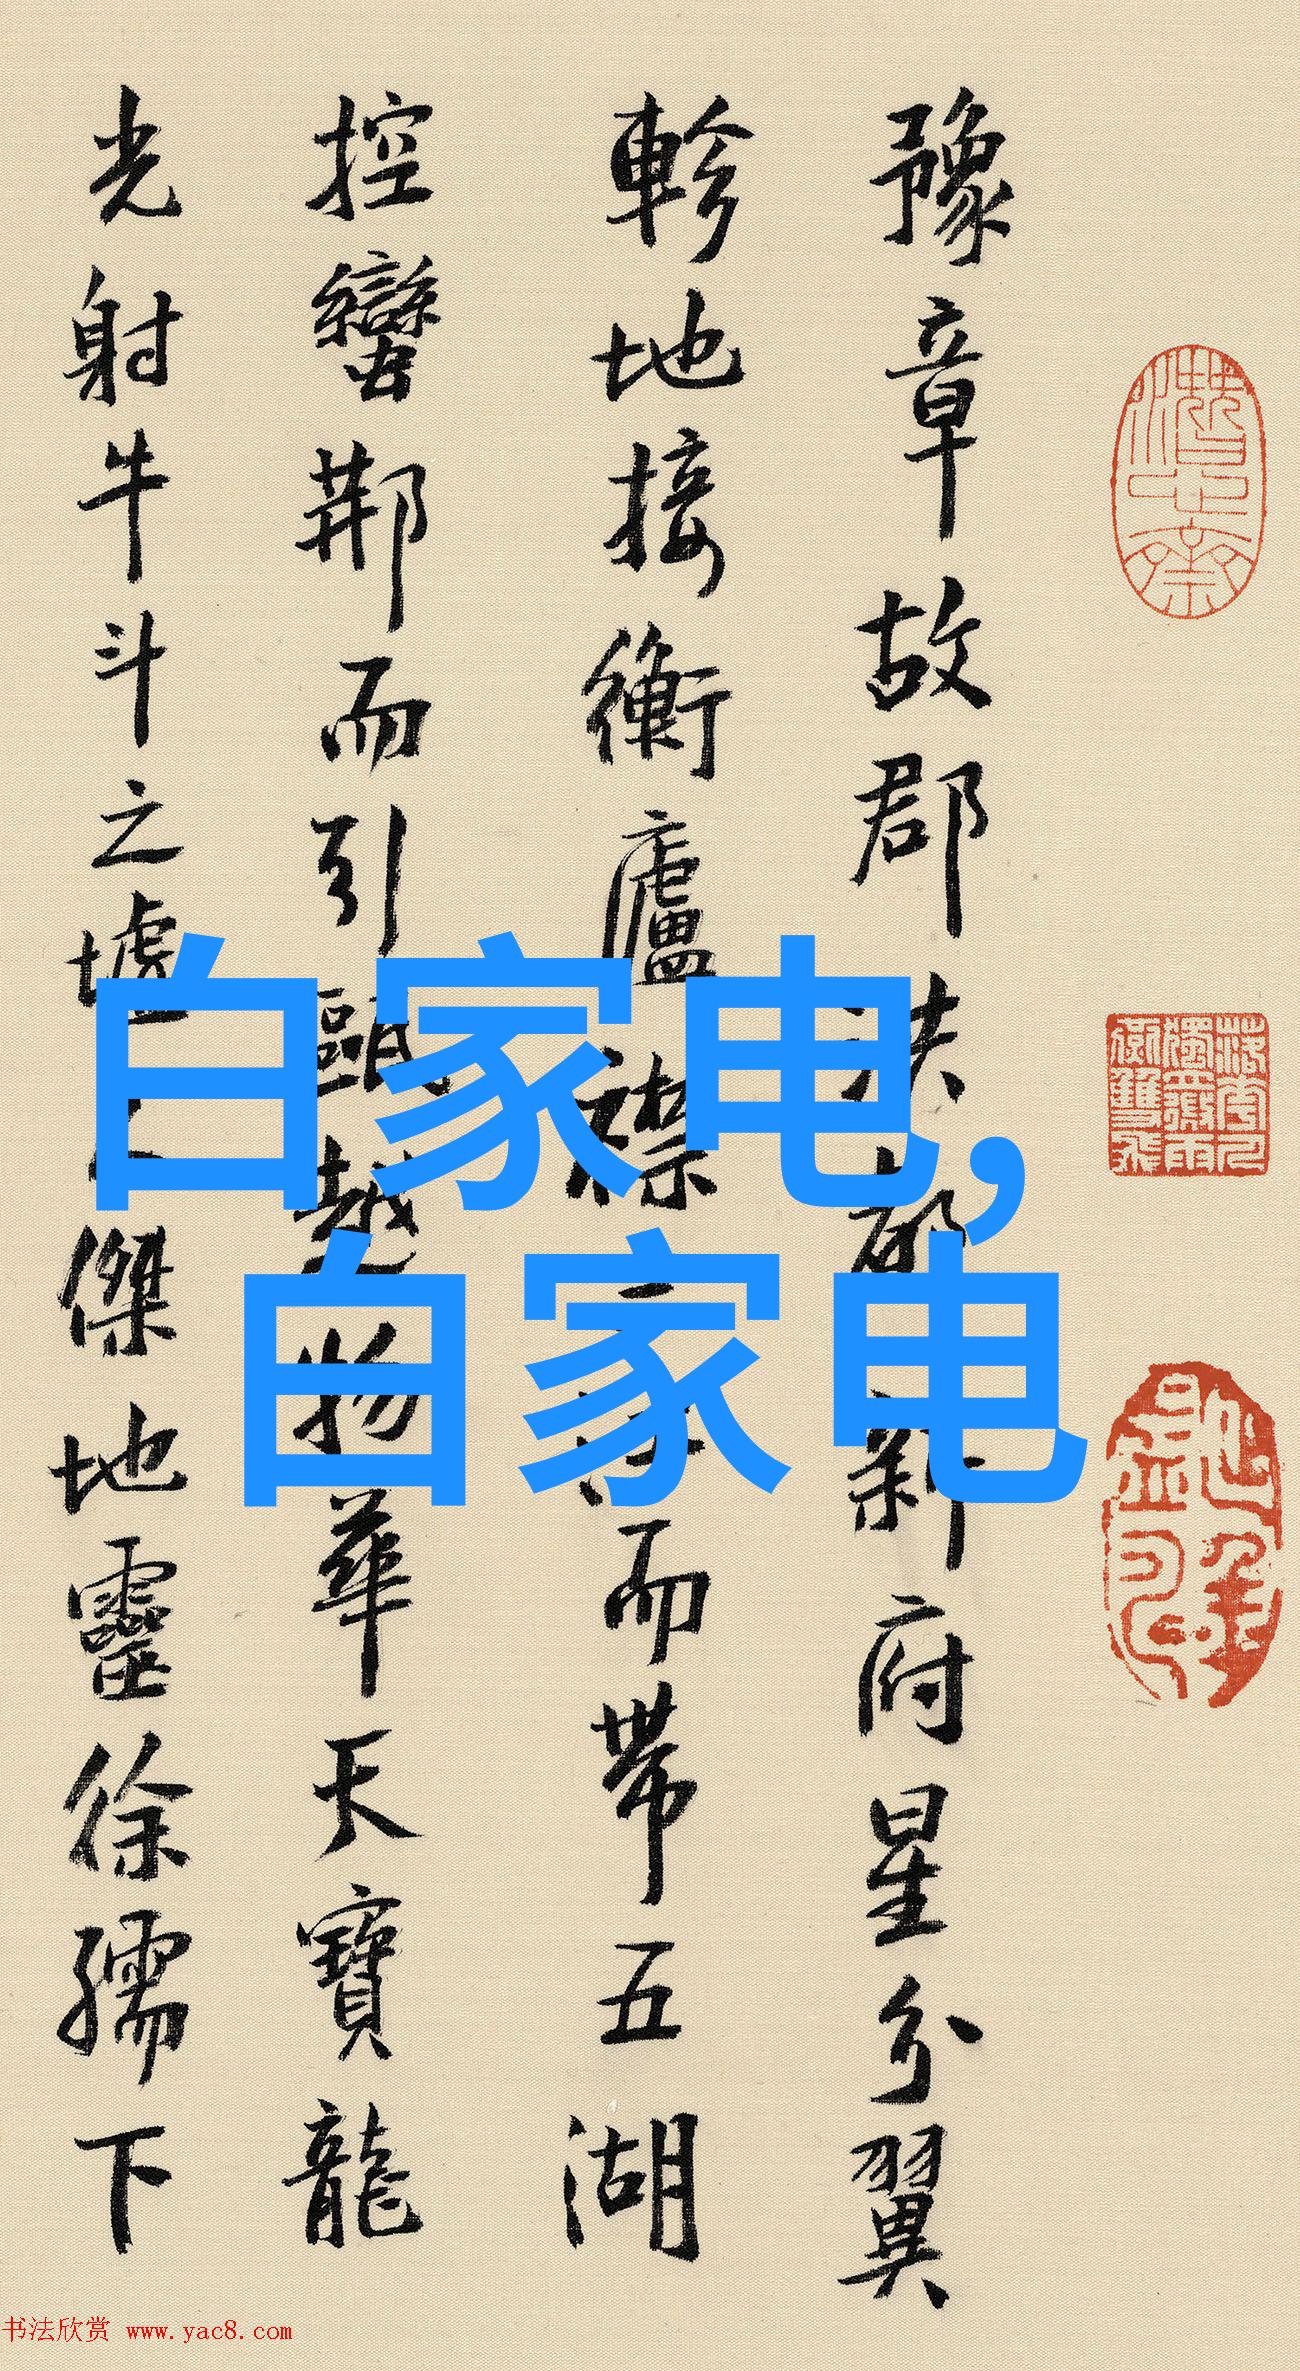 豫章故郡洪都新府星分翼
軫地接衡廬襟三江而帶五湖
控蠻荆而引甌越物華天寶龍
光射牛斗之墟人傑地靈徐孺下
白家电,
白家电
书法欣赏 www.yac8.com